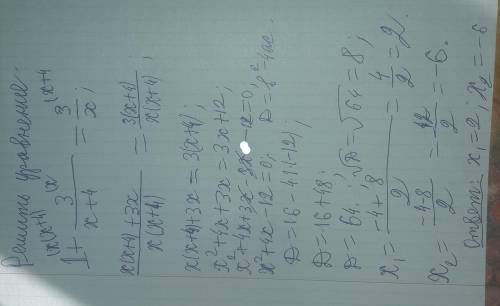 Решить уравнение:
1 + 3/(x+4) = 3/x;
(x(x+4)+3x)/(x(x+4)) = 3(x+4)/(x(x+4));
x(x+4)+3x = 3(x+4);
x²+4x+3x = 3x+12;
x²+4x+3x-3x-12=0;
x²+4x-12=0; D=в²-4ac.
D=16-4·1·(-12);
D=16+48;
D=64; √D=√64=8;
x₁ = (-4+8)/2 = 4/2 = 2.
x₂ = (-4-8)/2 = -12/2 = -6.
Ответ: x₁=2; x₂=-6